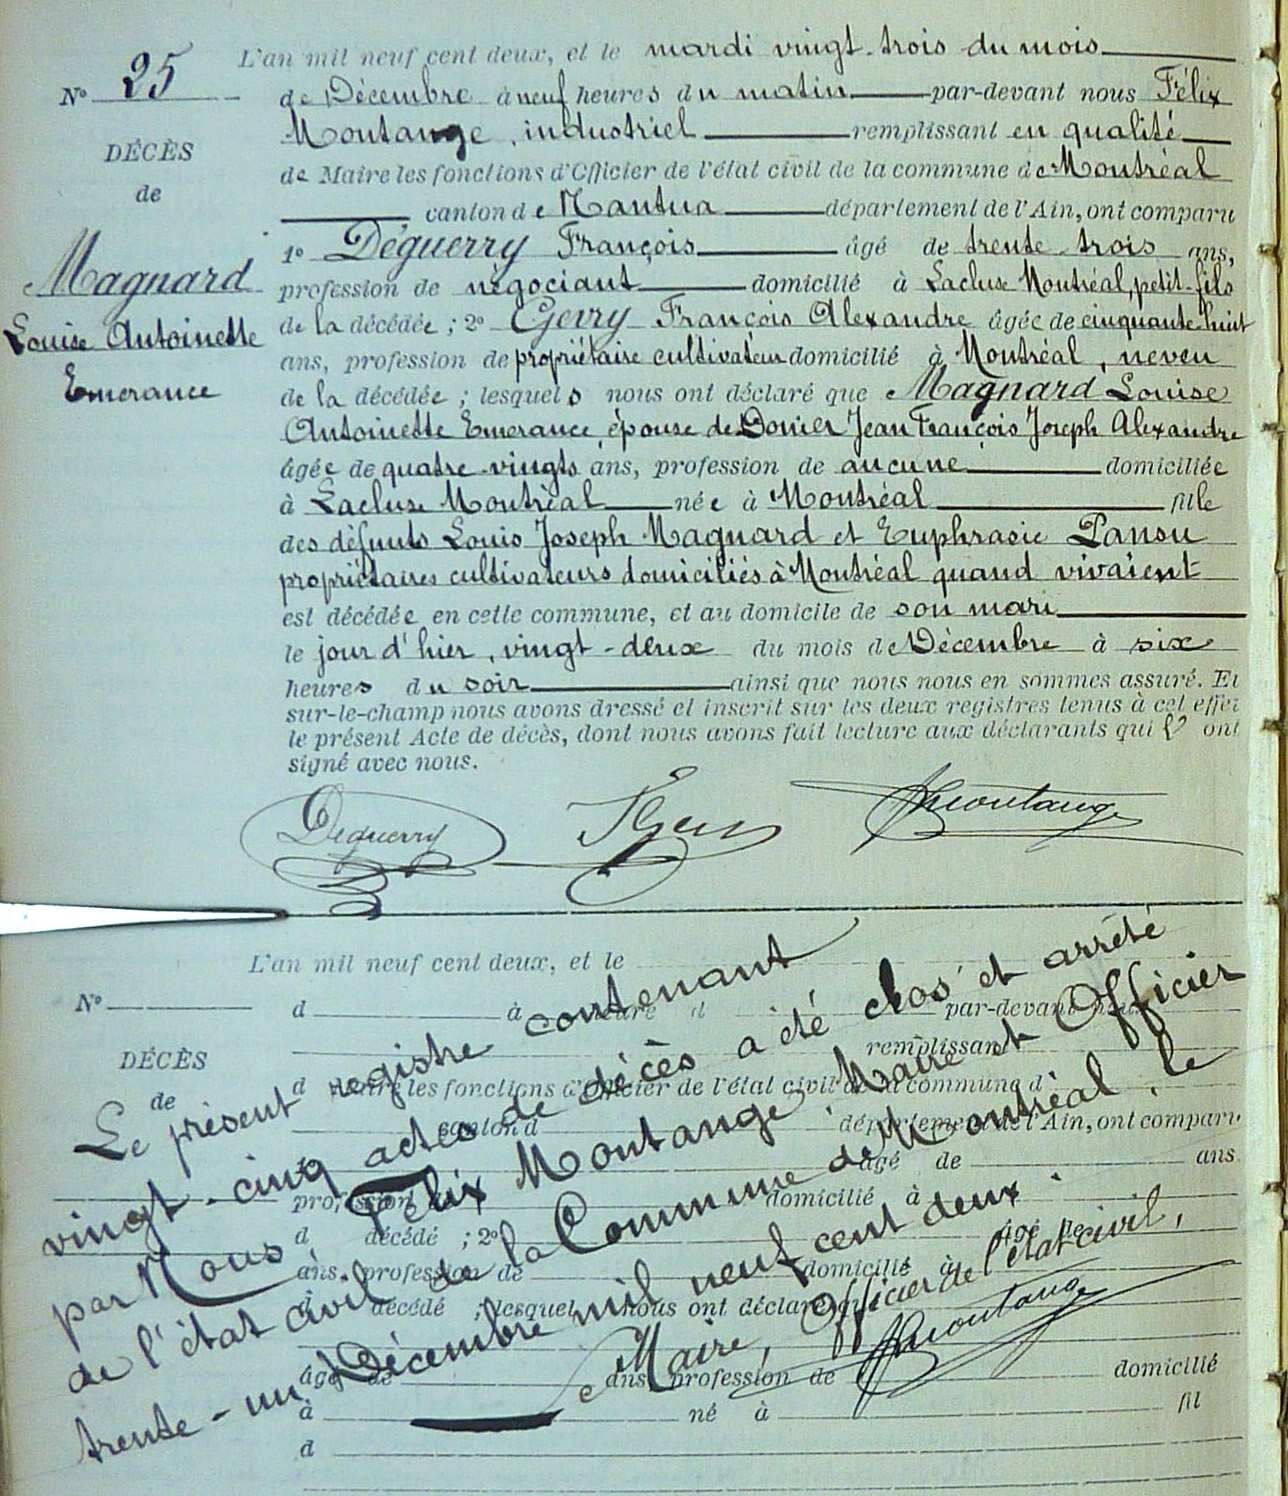 N° 25
DÉCÈS
de
Magnard
Louise Antoinette
Emerance
L'an mil neuf cent deux, et le mardi vingt-trois du mois
de Décembre à neuf heures du matin par-devant nous Félix
Moutange, industriel remplissant en qualité
de Maire les fonctions d'Officier de l'état civil de la commune de Montréal
canton de Nantua département de l'Ain, ont comparu
1° Déguerry François âgé de trente-trois ans,
profession de négociant domicilié à Lacluse Montréal, petit-fils
de la décédée ; 2° Gevry François Alexandre âgée de cinquante huit
ans, profession de propriétaire cultivateur domicilié à Montréal, neveu
de la décédée ; lesquels nous ont déclaré que Magnard Louise
Antoinette Emerance, épouse de Donier Jean François Joseph Alexandre
âgée de quatre-vingts ans, profession de aucune domiciliée
à Lacluse Montréal née à Montréal fille
des défunts Louis Joseph Magnard et Euphrasie Pansu
propriétaires cultivateurs domiciliés à Montréal quand vivaient
est décédée en cette commune, et au domicile de son mari
le jour d'hier, vingt-deux du mois de Décembre à six
heures du soir ainsi que nous nous en sommes assuré. Et
sur-le-champ nous avons dressé et inscrit sur les deux registres tenus à cet effet
le présent Acte de décès, dont nous avons fait lecture aux déclarants qui ont
signé avec nous.
Déguerry Moutange
L'an mil neuf cent deux, et le
N°
DÉCÈS
de
d à heure d par-devant nous
remplissant
d Maire les fonctions d'Officier de l'état civil de la commune d
canton d département de l'Ain, ont comparu
âgé de ans
profession domicilié à
d décédé ; 2° âgé de
ans, profession de domicilié à
d décédé ; lesquel nous ont déclaré que
âgé de ans profession de domicilié
à né à fil
d
Le présent registre contenant
vingt-cinq actes de décès a été clos et arrêté
par Nous Félix Moutange, Maire et Officier
de l'état civil de la Commune de Montréal, le
trente-un Décembre mil neuf cent deux.
Maire, Officier de l'état civil,
Moutange